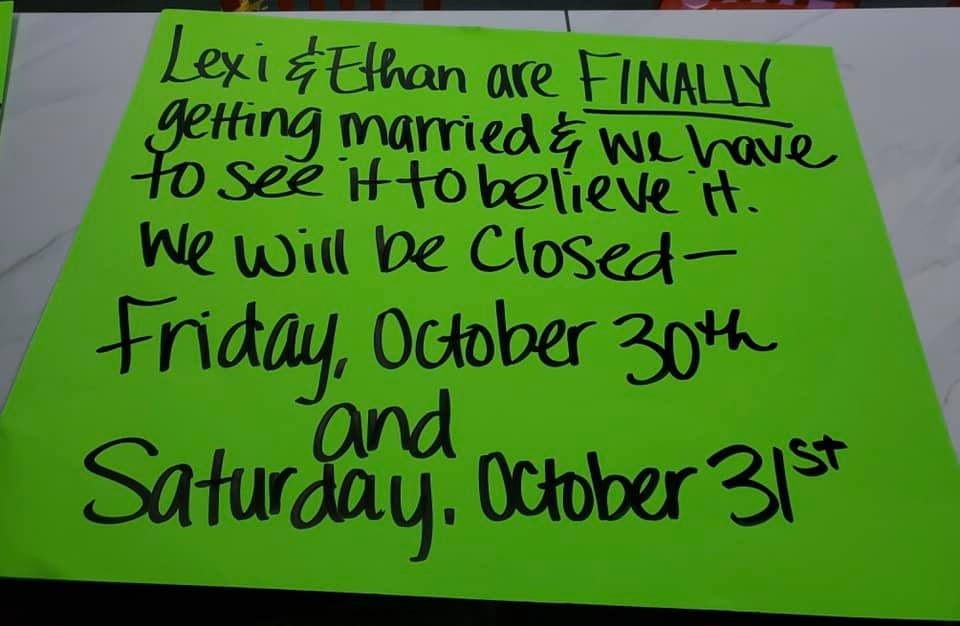 Lexi & Ethan are FINALLY
getting married & we have
to see it to believe it.
We will be Closed—
Friday, October 30th
and
Saturday. October 31st